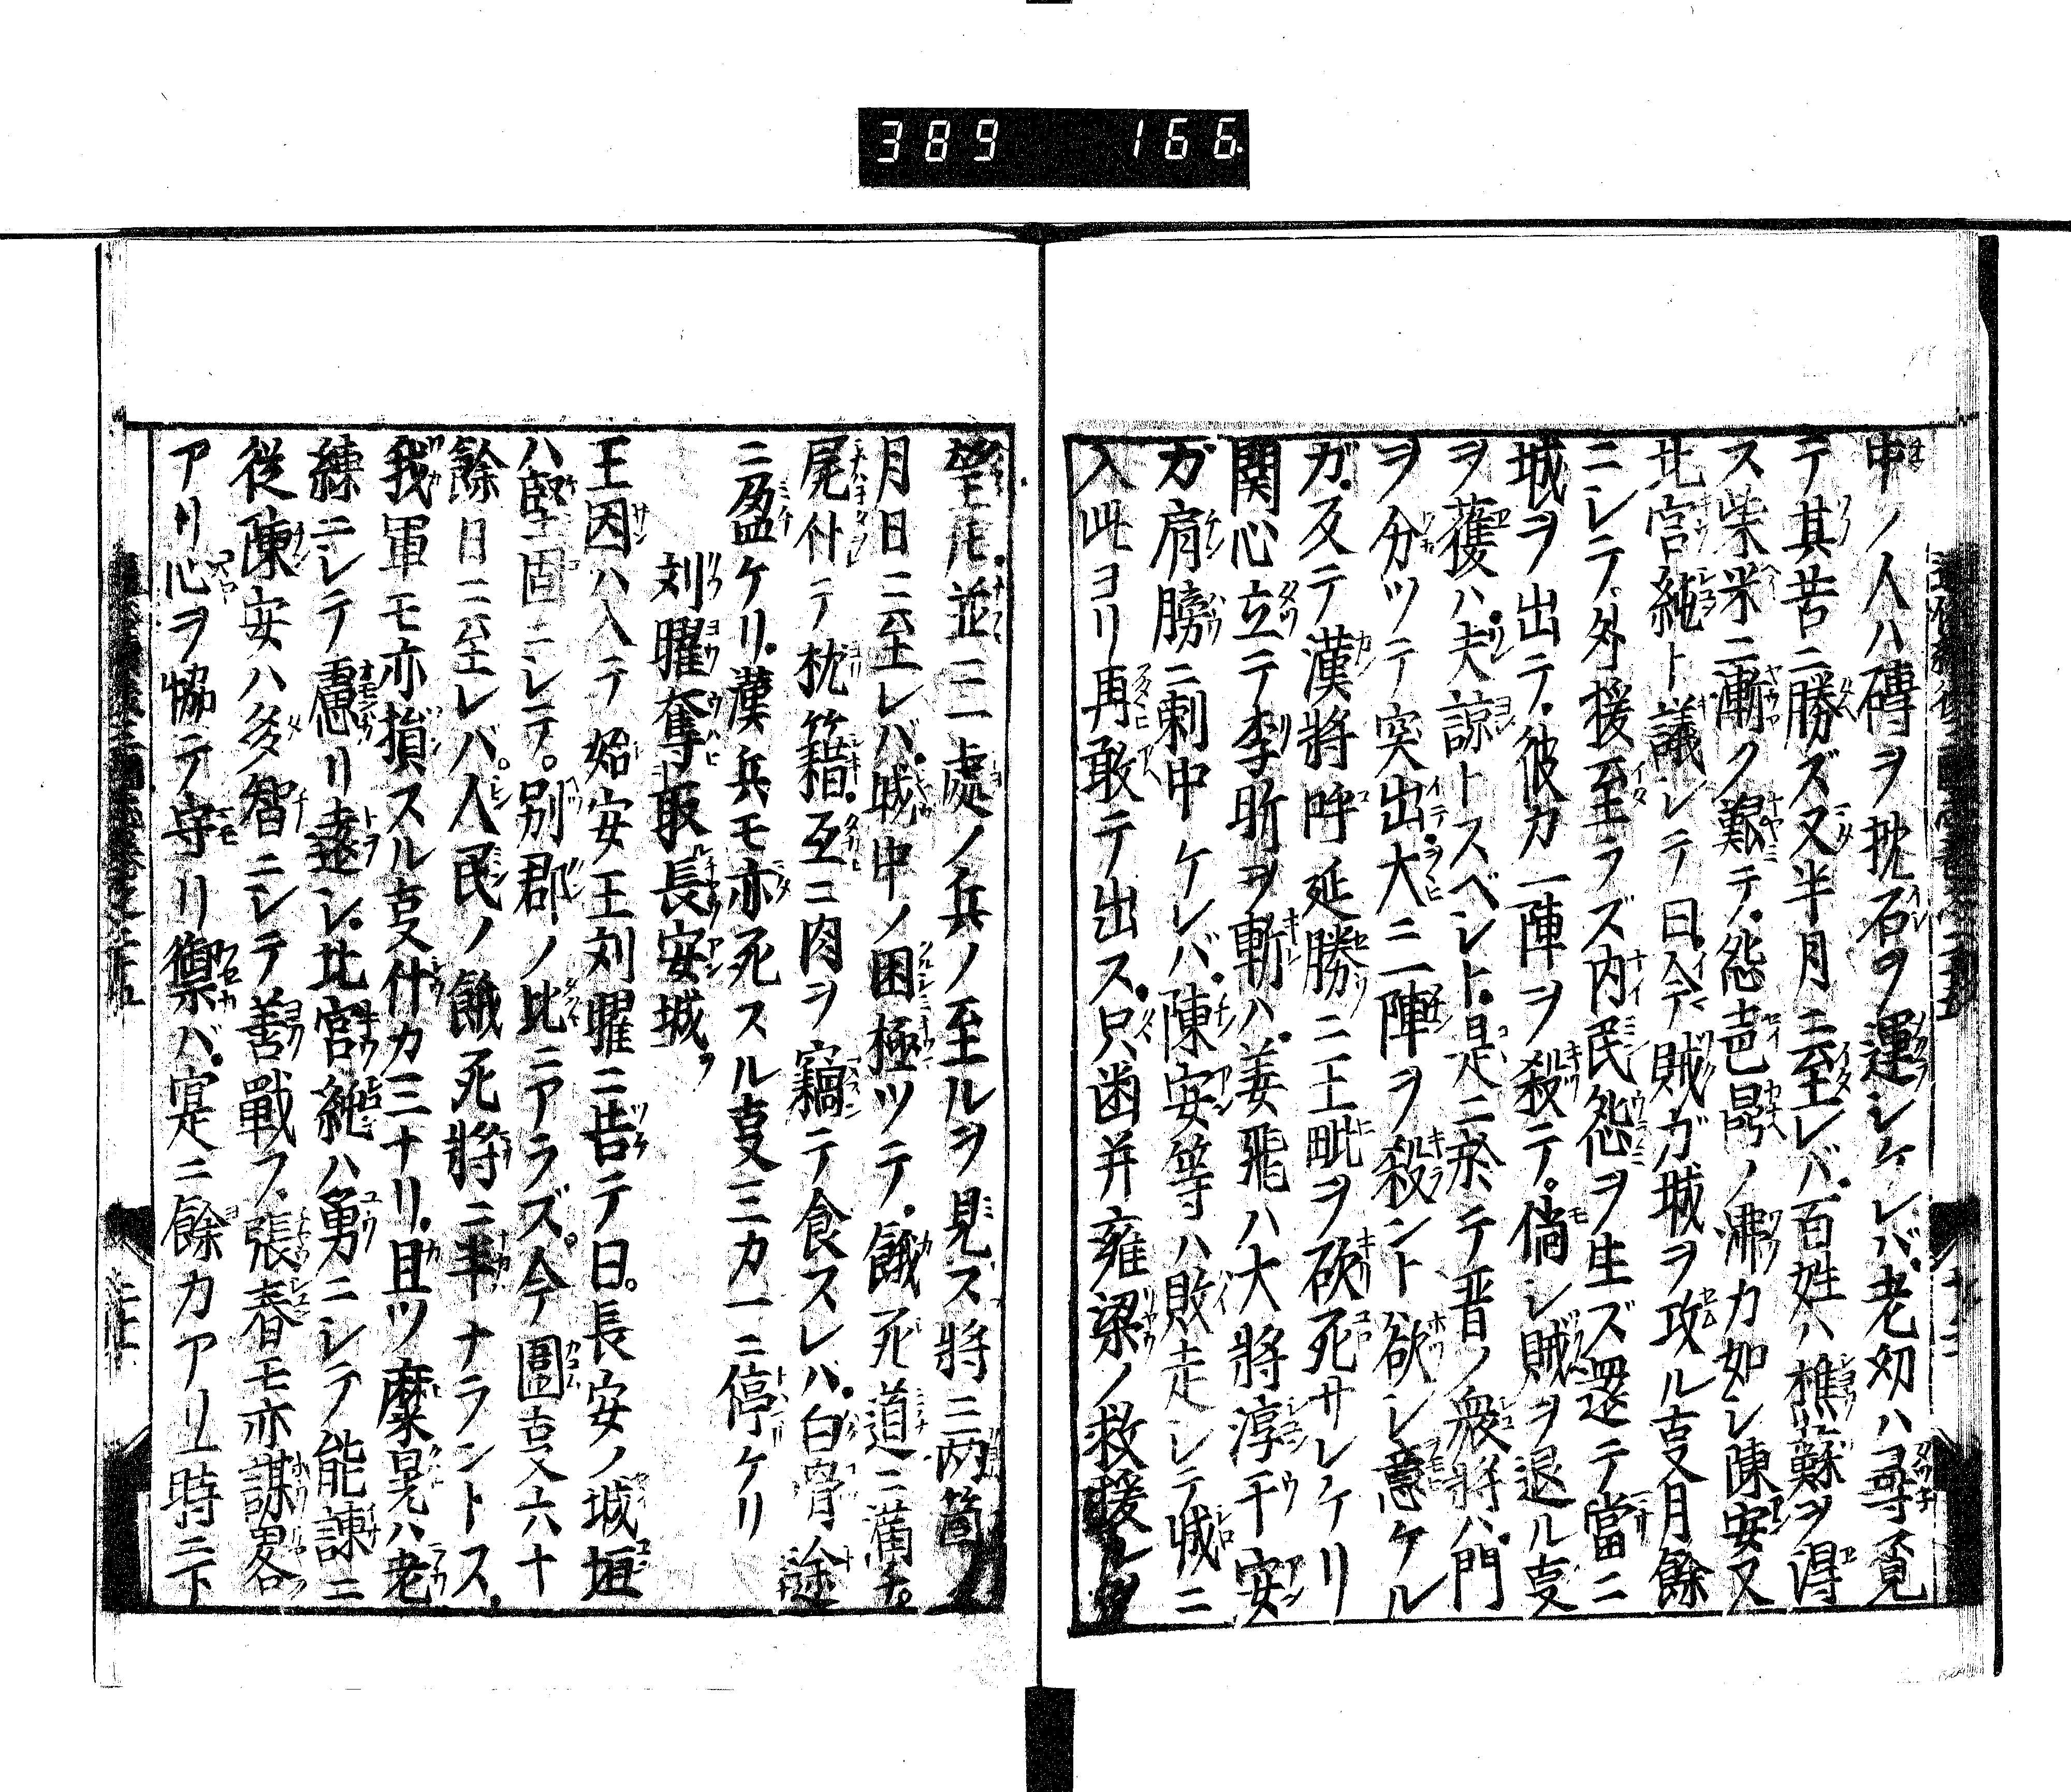 389 166
中ノ人ハ磚ヲ扰石ヲ運シケレバ老幼ハ尋覓
テ其苦ニ勝ズ又半月ニ至レバ百姓ハ樵蘇ヲ得
ス柴米ニ漸ク艱テ怨邑昂ノ沸カ如シ陳安又
北宮純ト議シテ曰今賊ガ城ヲ攻ル𫝆月餘
ニシテ外援至ラズ内民怨ヲ生ズ還テ當ニ
城ヲ出テ彼カ一陣ヲ殺テ倘シ賊ヲ退ル𫝆
ヲ獲ハ夫諒トスベシト是ニ於テ晋ノ衆將ハ門
ヲ分ツテ突出大ニ一陣ヲ殺ント欲シ意ケル
ガ反テ漢將呼延勝ニ王毗ヲ砍死サレケリ
関心立テ李昕ヲ斬ハ姜飛ハ大將淳于安
ガ肩膀ニ刺中ケレバ陳安等ハ敗走シテ城ニ
入此ヨリ再敢テ出ス只歯并雍梁ノ救援
望並ニ一處ノ兵ノ至ルヲ見ス將ニ两箇ノ
月日ニ至レバ城中ノ困極ツテ餓死道ニ満チ
尾什テ枕籍互ニ肉ヲ竊テ食スレバ白骨途
ニ盈ケリ漢兵モ亦死スル𫝆三カ一ニ停ケリ
刘曜奪取長安城
王因ハ入テ始安王刘曜ニ告テ曰長安ノ城垣
ハ堅固ニシテ別郡ノ比ニアラズ今圍𫝆六十
餘日ニ至レバ人民ノ餓死將ニ半ナラントス
我軍モ亦損スル𫝆什カ三ナリ且ツ麋晃ハ老
練ニシテ慮リ遠シ北宮純ハ勇ニシテ能諌ニ
從陳安ハ多智ニシテ善戰フ張春モ亦謀畧
アリ心ヲ恊テ守リ禦バ寔ニ餘力アリ一時ニ下